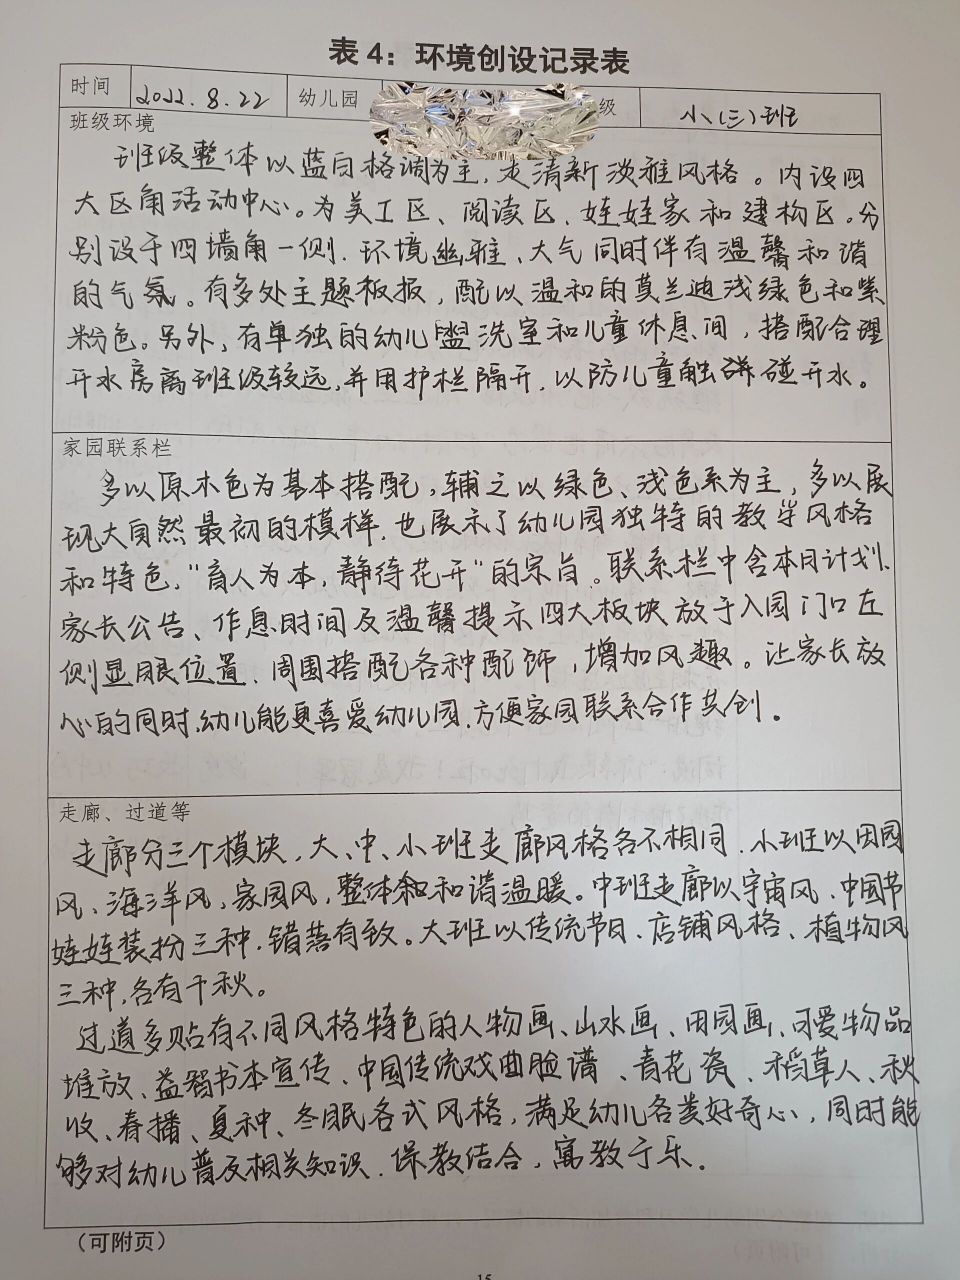 表4：环境创设记录表
时间 2022.8.22 幼儿园 级 小（三）班
班级环境
班级整体以蓝白格调为主，走清新淡雅风格。内设四
大区角活动中心。为美工区、阅读区、娃娃家和建构区。分
别设于四墙角一侧．环境幽雅、大气同时伴有温馨和谐
的气氛。有多处主题板报，配以温和的莫兰迪浅绿色和紫
粉色。另外，有单独的幼儿盥洗室和儿童休息间，搭配合理
开水房离班级较远，并用护栏隔开，以防儿童触碰开水。
家园联系栏
多以原木色为基本搭配，辅之以绿色、浅色系为主，多以展
现大自然最初的模样．也展示了幼儿园独特的教学风格
和特色，“育人为本，静待花开”的宗旨。联系栏中含本月计划、
家长公告、作息时间及温馨提示四大板块放于入园门口左
侧显眼位置．周围搭配各种配饰，增加风趣。让家长放
心的同时，幼儿能更喜爱幼儿园，方便家园联系合作共创。
走廊、过道等
走廊分三个模块，大、中、小班走廊风格各不相同．小班以田园
风、海洋风，家园风，整体和谐温暖。中班走廊以宇宙风、中国节
娃娃装扮三种，错落有致。大班以传统节日、店铺风格、植物风
三种，各有千秋。
过道多贴有不同风格特色的人物画、山水画、田园画，可爱物品
堆放、益智书本宣传、中国传统戏曲脸谱、青花瓷、稻草人、秋
收、春播、夏种、冬眠各式风格，满足幼儿各类好奇心，同时能
够对幼儿普及相关知识．保教结合，寓教于乐。
（可附页）
15